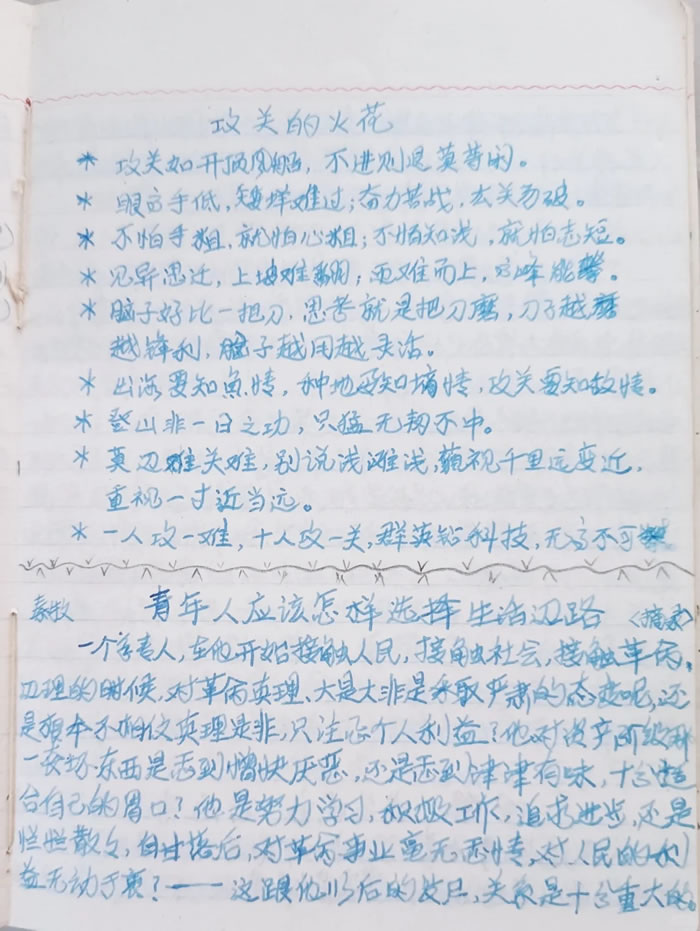 攻关的火花
* 攻关如开顶风船，不进则退莫等闲。
* 眼高手低，矮垟难过；奋力苦战，玄关易破。
* 不怕手粗，就怕心粗；不怕知浅，就怕志短。
* 见异思迁，上坡难翻；迎难而上，高峰能攀。
* 脑子好比一把刀，思苦就是把刀磨，刀子越磨
越锋利，脑子越用越灵活。
* 出海要知鱼情，种地要知墒情，攻关要知敌情。
* 登山非一日之功，只猛无韧不中。
* 莫叹难关难，别说浅滩浅，藐视千里远变近，
重视一寸近当远。
* 一人攻一难，十人攻一关，群英钻科技，无高不可攀。
秦牧 青年人应该怎样选择生活边路 〈摘录〉
一个年青人，在他开始接触人民，接触社会，接触革命，
真理的时候，对革命真理、大是大非是采取严肃的态度呢，还
是根本不相信真理是非，只注意个人利益？他对资产阶级那
一套坏东西是感到憎恨厌恶，还是感到津津有味，十分适
合自己的胃口？他是努力学习，积极工作，追求进步，还是
烂烂散散，自甘落后，对革命事业毫无感情，对人民的利
益无动于衷？—— 这跟他以后的发展，关系是十分重大的。